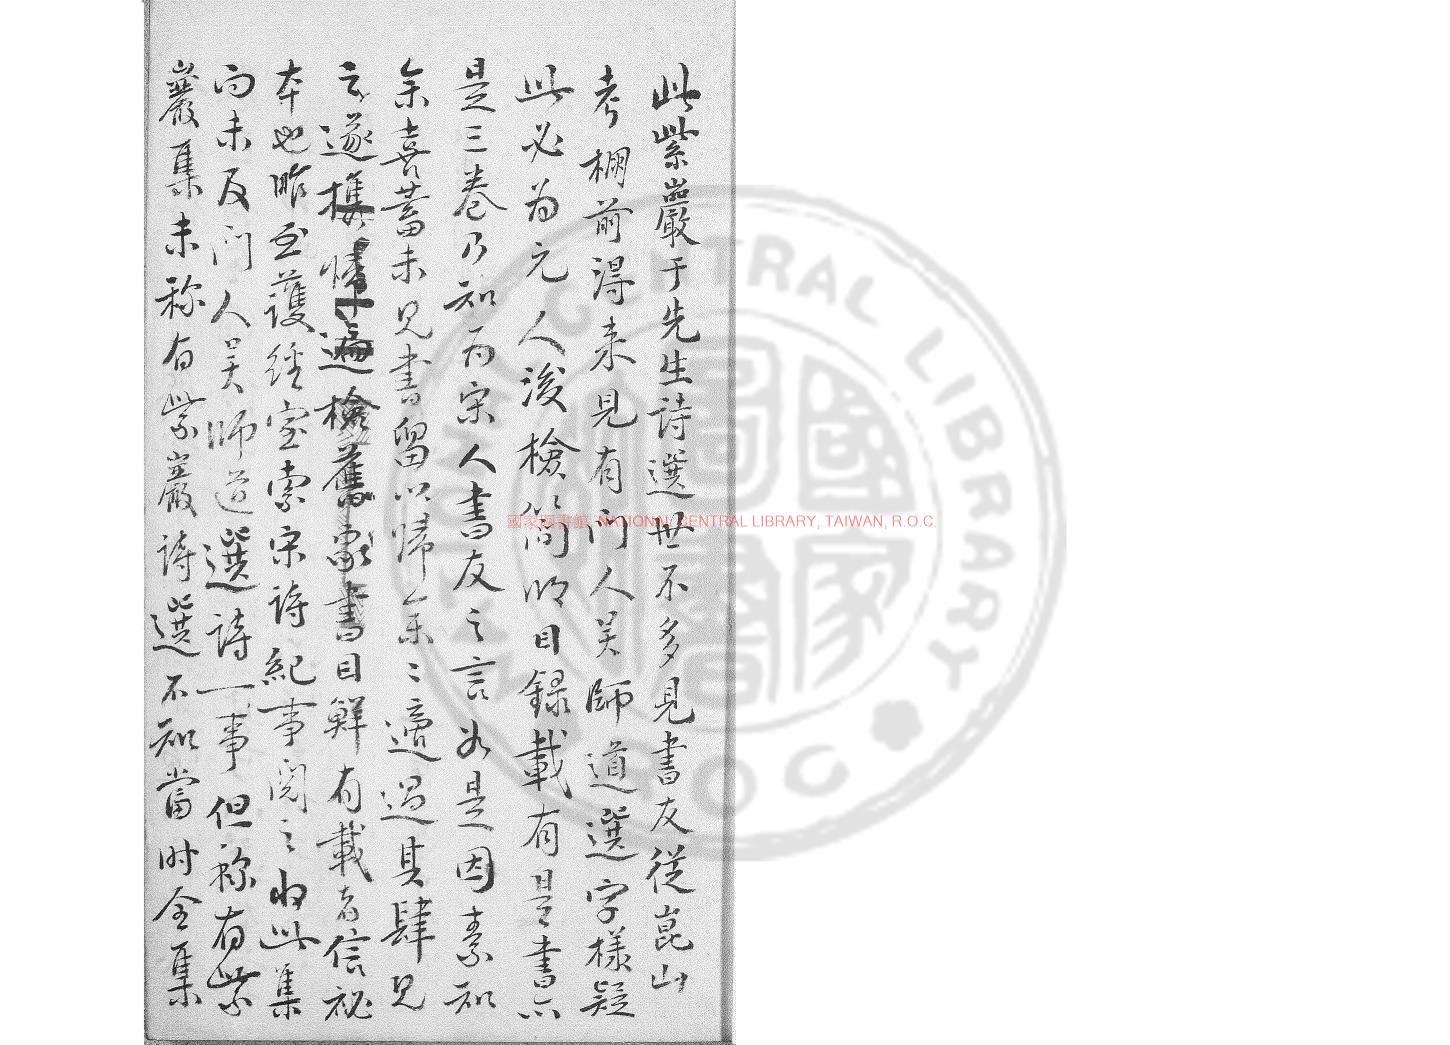 此紫巖于先生詩選世不多見書友從崑山
考棚前得来見有门人吴師道選字樣疑
此必为元人後檢箭明目録載有是書亦
是三卷乃知为宋人書友之言如是因素知
余喜蓄未見書留以归余余適過其肆見
之遂携歸遍檢舊家書目鮮有載者信祕
本也昨至護經室索宋詩紀事閲之收此集
而未及门人吴師道選詩一事但称有紫
巖集未称有紫巖詩選不知當时全集
國家圖書館 NATIONAL CENTRAL LIBRARY, TAIWAN, R.O.C.
NATIONAL CENTRAL LIBRARY
ROC
國家圖書